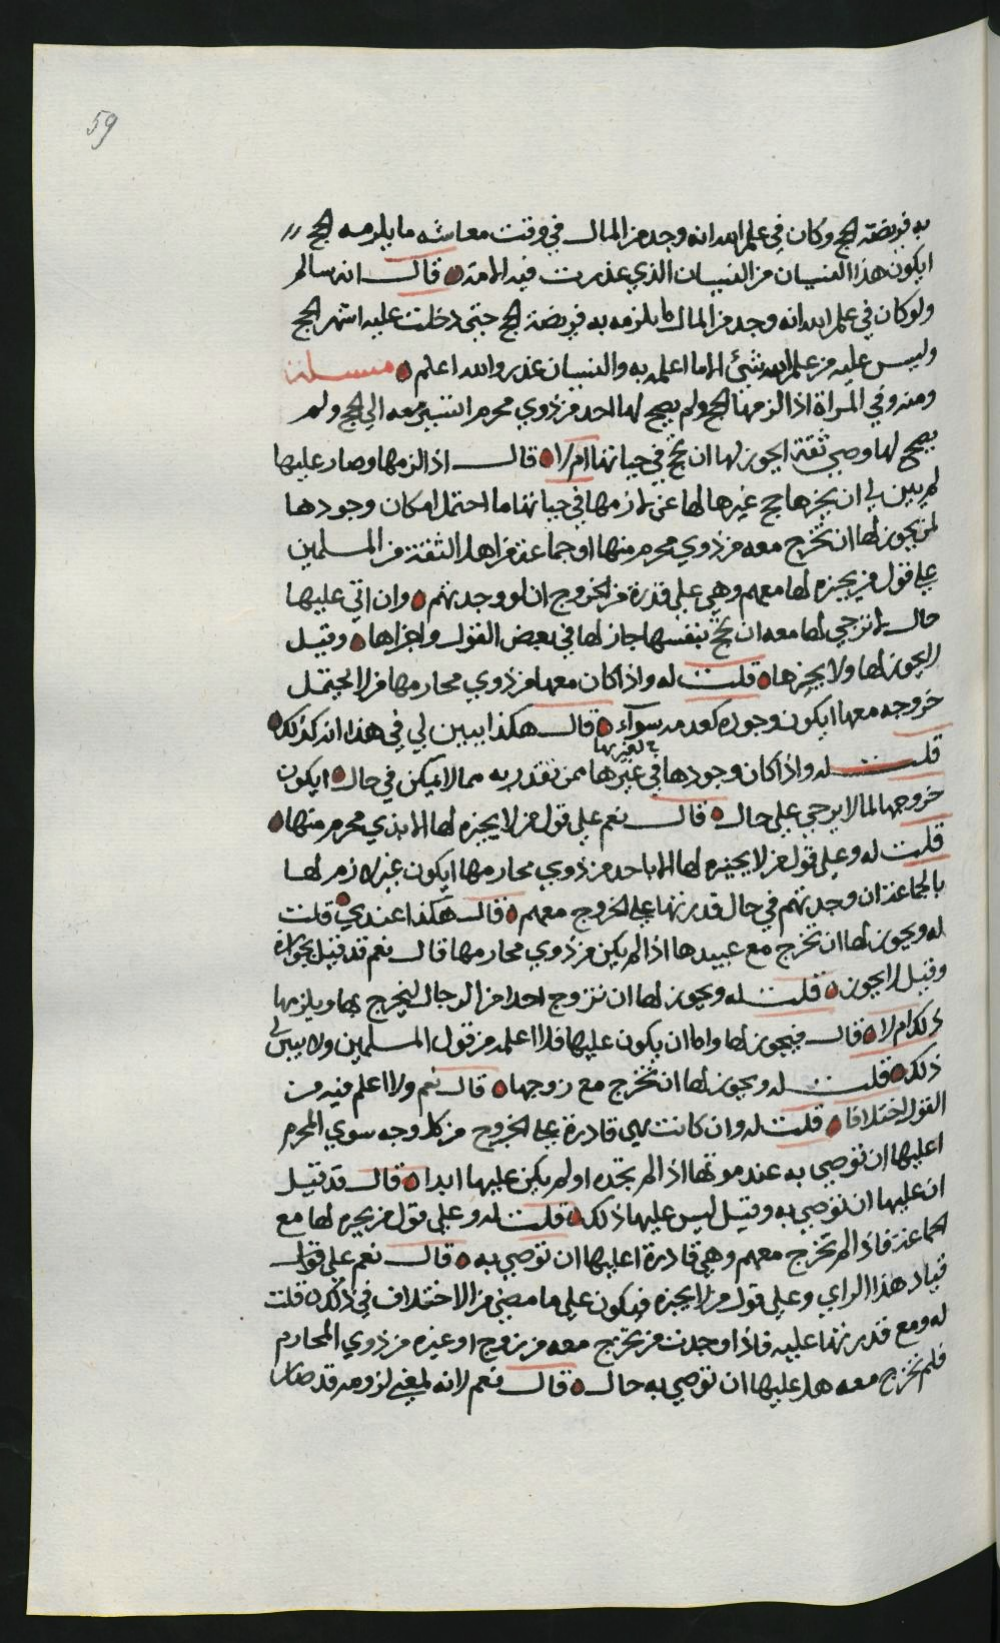 59
به فريضة الحج وكان في علم الله انه وجد من المال في وقت معاشه ما يلزمه الحج //
ايكون هذا النسيان من النسيان الذي عذرت فيه الامة قال انه سالم
ولو كان في علم الله انه وجد من المال ما يلزمه به فريضة الحج حتى دخلت عليه اشهر الحج
وليس عليه من علم الله شئ الا ما اعلمه به والنسيان عذر والله اعلم مسئلة
ومنه وفي المراة اذا لزمها الحج ولم يصح لها احد من ذوي محرم تسير معه الى الحج ولم
يصح لها وصي ثقة ايجوز لها ان تحج في حياتها ام لا قال اذا لزمها وصار عليها
لم يبن لي ان يجزها حج غيرها لها عن لازمها في حياتها ما احتمل امكان وجودها
لمن يجوز لها ان تخرج معه من ذوي محرم منها او جماعة من اهل الثقة من المسلمين
على قول من يجيزه لها معهم وهي على قدرة من الخروج ان لو وجدتهم وان اتى عليها
حال لا ترجي لها معه ان تحج بنفسها جاز لها في بعض القول واجزاها وقيل
لا يجوز لها ولا يجزها قلت له واذا كان معها من ذوي محارمها من لا يحتمل
خروجه معها ايكون وجوده كعدمه سوآء قال هكذا يبين لي في هذا انه كذلك
قلت له واذا كان وجودها في غيرها ممن تقدر به مما لا يمكن في حال ايكون
خروجها لما لا يرجي على حال قال نعم على قول من لا يجيزه لها الا بذي محرم منها
قلت له وعلى قول من لا يجيزه لها الا باحد من ذوي محارمها ايكون غير لازم لها
بالجماعة ان وجدتهم في حال قدرتها على الخروج معهم قال هكذا عندي قلت
له ويجوز لها ان تخرج مع عبيدها اذا لم يكن من ذوي محارمها قال نعم قد قيل بجوازه
وقيل لا يجوز قلت له ويجوز لها ان تتزوج احدا من الرجال ليخرج بها ويلزمها
ذلك ام لا قال فيجوز لها واما ان يكون عليها فلا اعلمه من قول المسلمين ولا يبين لي
ذلك قلت له ويجوز لها ان تخرج مع زوجها قال نعم ولا اعلم فيه من
القول اختلافا قلت له وان كانت هي قادرة على الخروج من كل وجه سوي المحرم
اعليها ان توصي به عند موتها اذا لم تجده او لم يكن عليها ابدا قال قد قيل
ان عليها ان توصي به وقيل ليس عليها ذلك قلت له وعلى قول من يجيزه لها مع
الجماعة فاذا لم تخرج معهم وهي قادرة اعليها ان توصي به قال نعم على قول
قياد هذا الراي وعلى قول من لا يجيزه فيكون على ما مضى من الاختلاف في ذلك قلت
له ومع قدرتها عليه فاذا وجدت من تخرج معه من زوج او غيره من ذوي المحارم
فلم تخرج معه هل عليها ان توصي به حال قال نعم لانه لمعنى لزومه قد صار